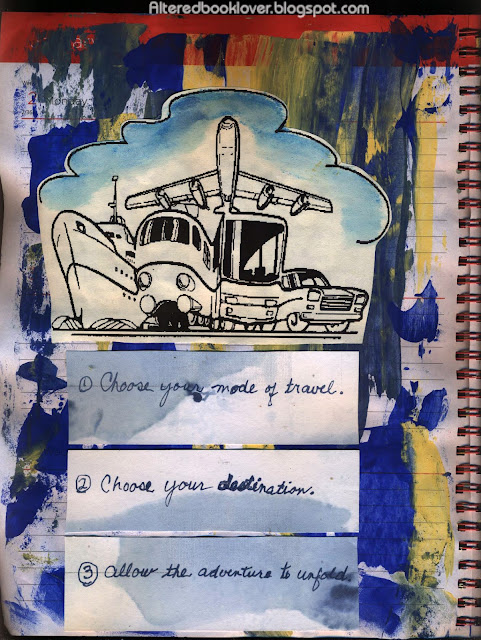 Alteredbooklover.blogspot.com
① Choose your mode of travel.
② Choose your destination.
③ Allow the adventure to unfold.